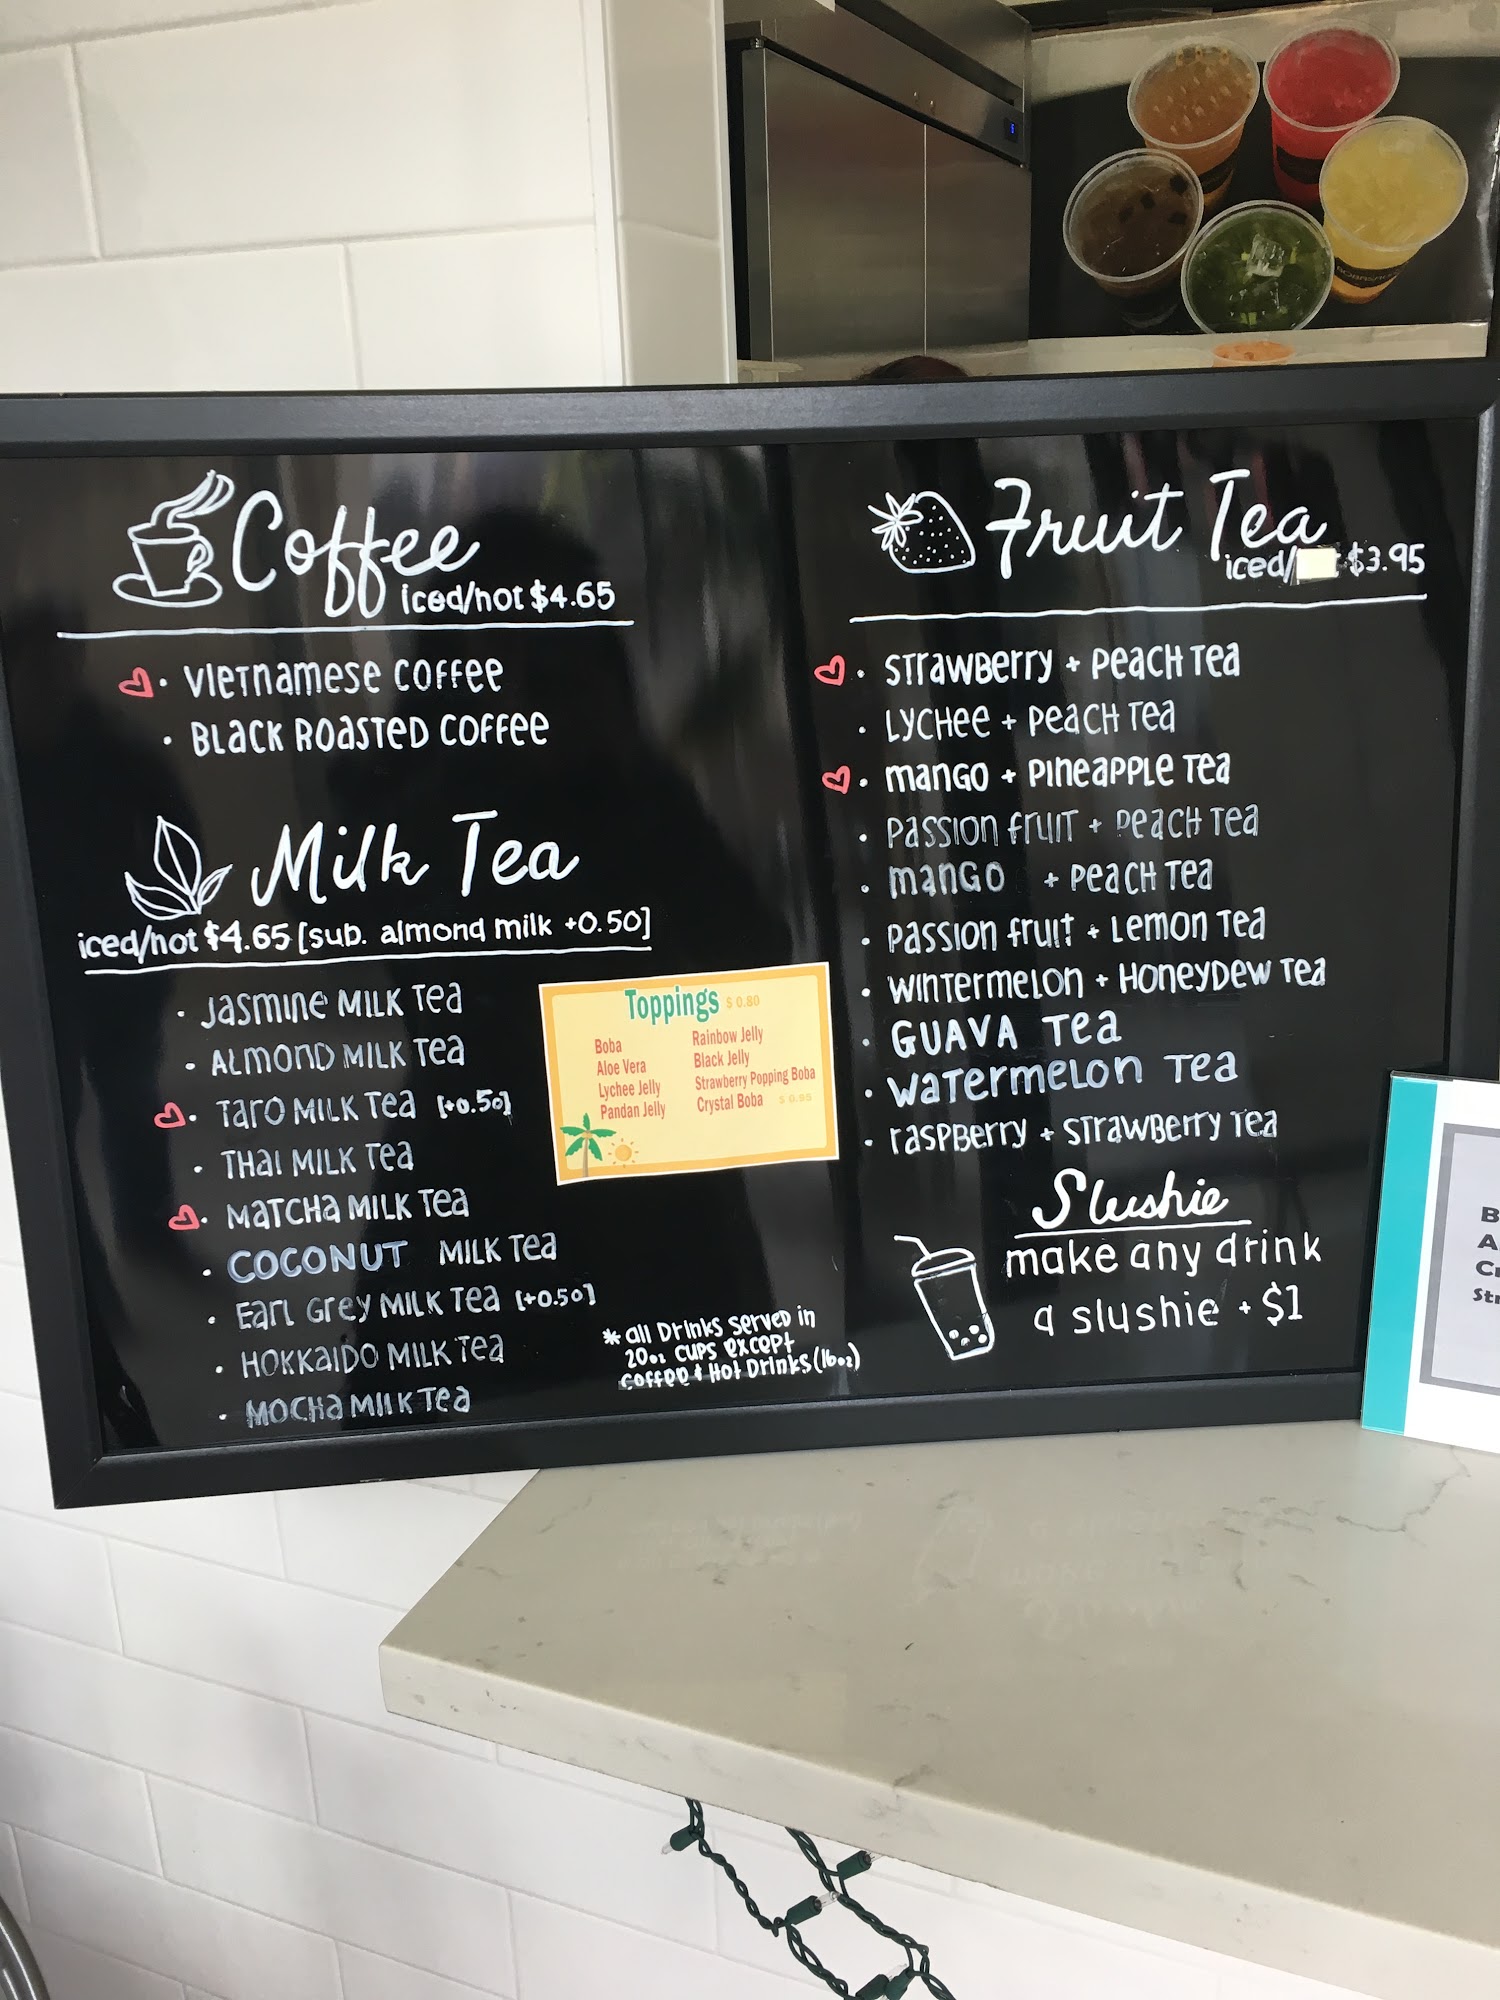 Coffee
iced/hot $4.65
• Vietnamese Coffee
• Black Roasted Coffee
Milk Tea
iced/hot $4.65 [sub. almond milk +0.50]
• Jasmine Milk Tea
• Almond Milk Tea
• Taro Milk Tea [+0.50]
• Thai Milk Tea
• Matcha Milk Tea
• COCONUT Milk Tea
• Earl Grey Milk Tea [+0.50]
• Hokkaido Milk Tea
• Mocha Milk Tea
Toppings $0.80
Boba
Aloe Vera
Lychee Jelly
Pandan Jelly
Rainbow Jelly
Black Jelly
Strawberry Popping Boba
Crystal Boba $0.95
* all Drinks served in
20oz cups except
coffee & Hot Drinks (16oz)
Fruit Tea
iced/ $3.95
• Strawberry + Peach Tea
• Lychee + Peach Tea
• mango + Pineapple Tea
• Passion fruit + Peach Tea
• mango + Peach Tea
• Passion fruit + Lemon Tea
• Wintermelon + Honeydew Tea
• GUAVA Tea
• Watermelon Tea
• raspberry + Strawberry Tea
Slushie
make any drink
a slushie + $1